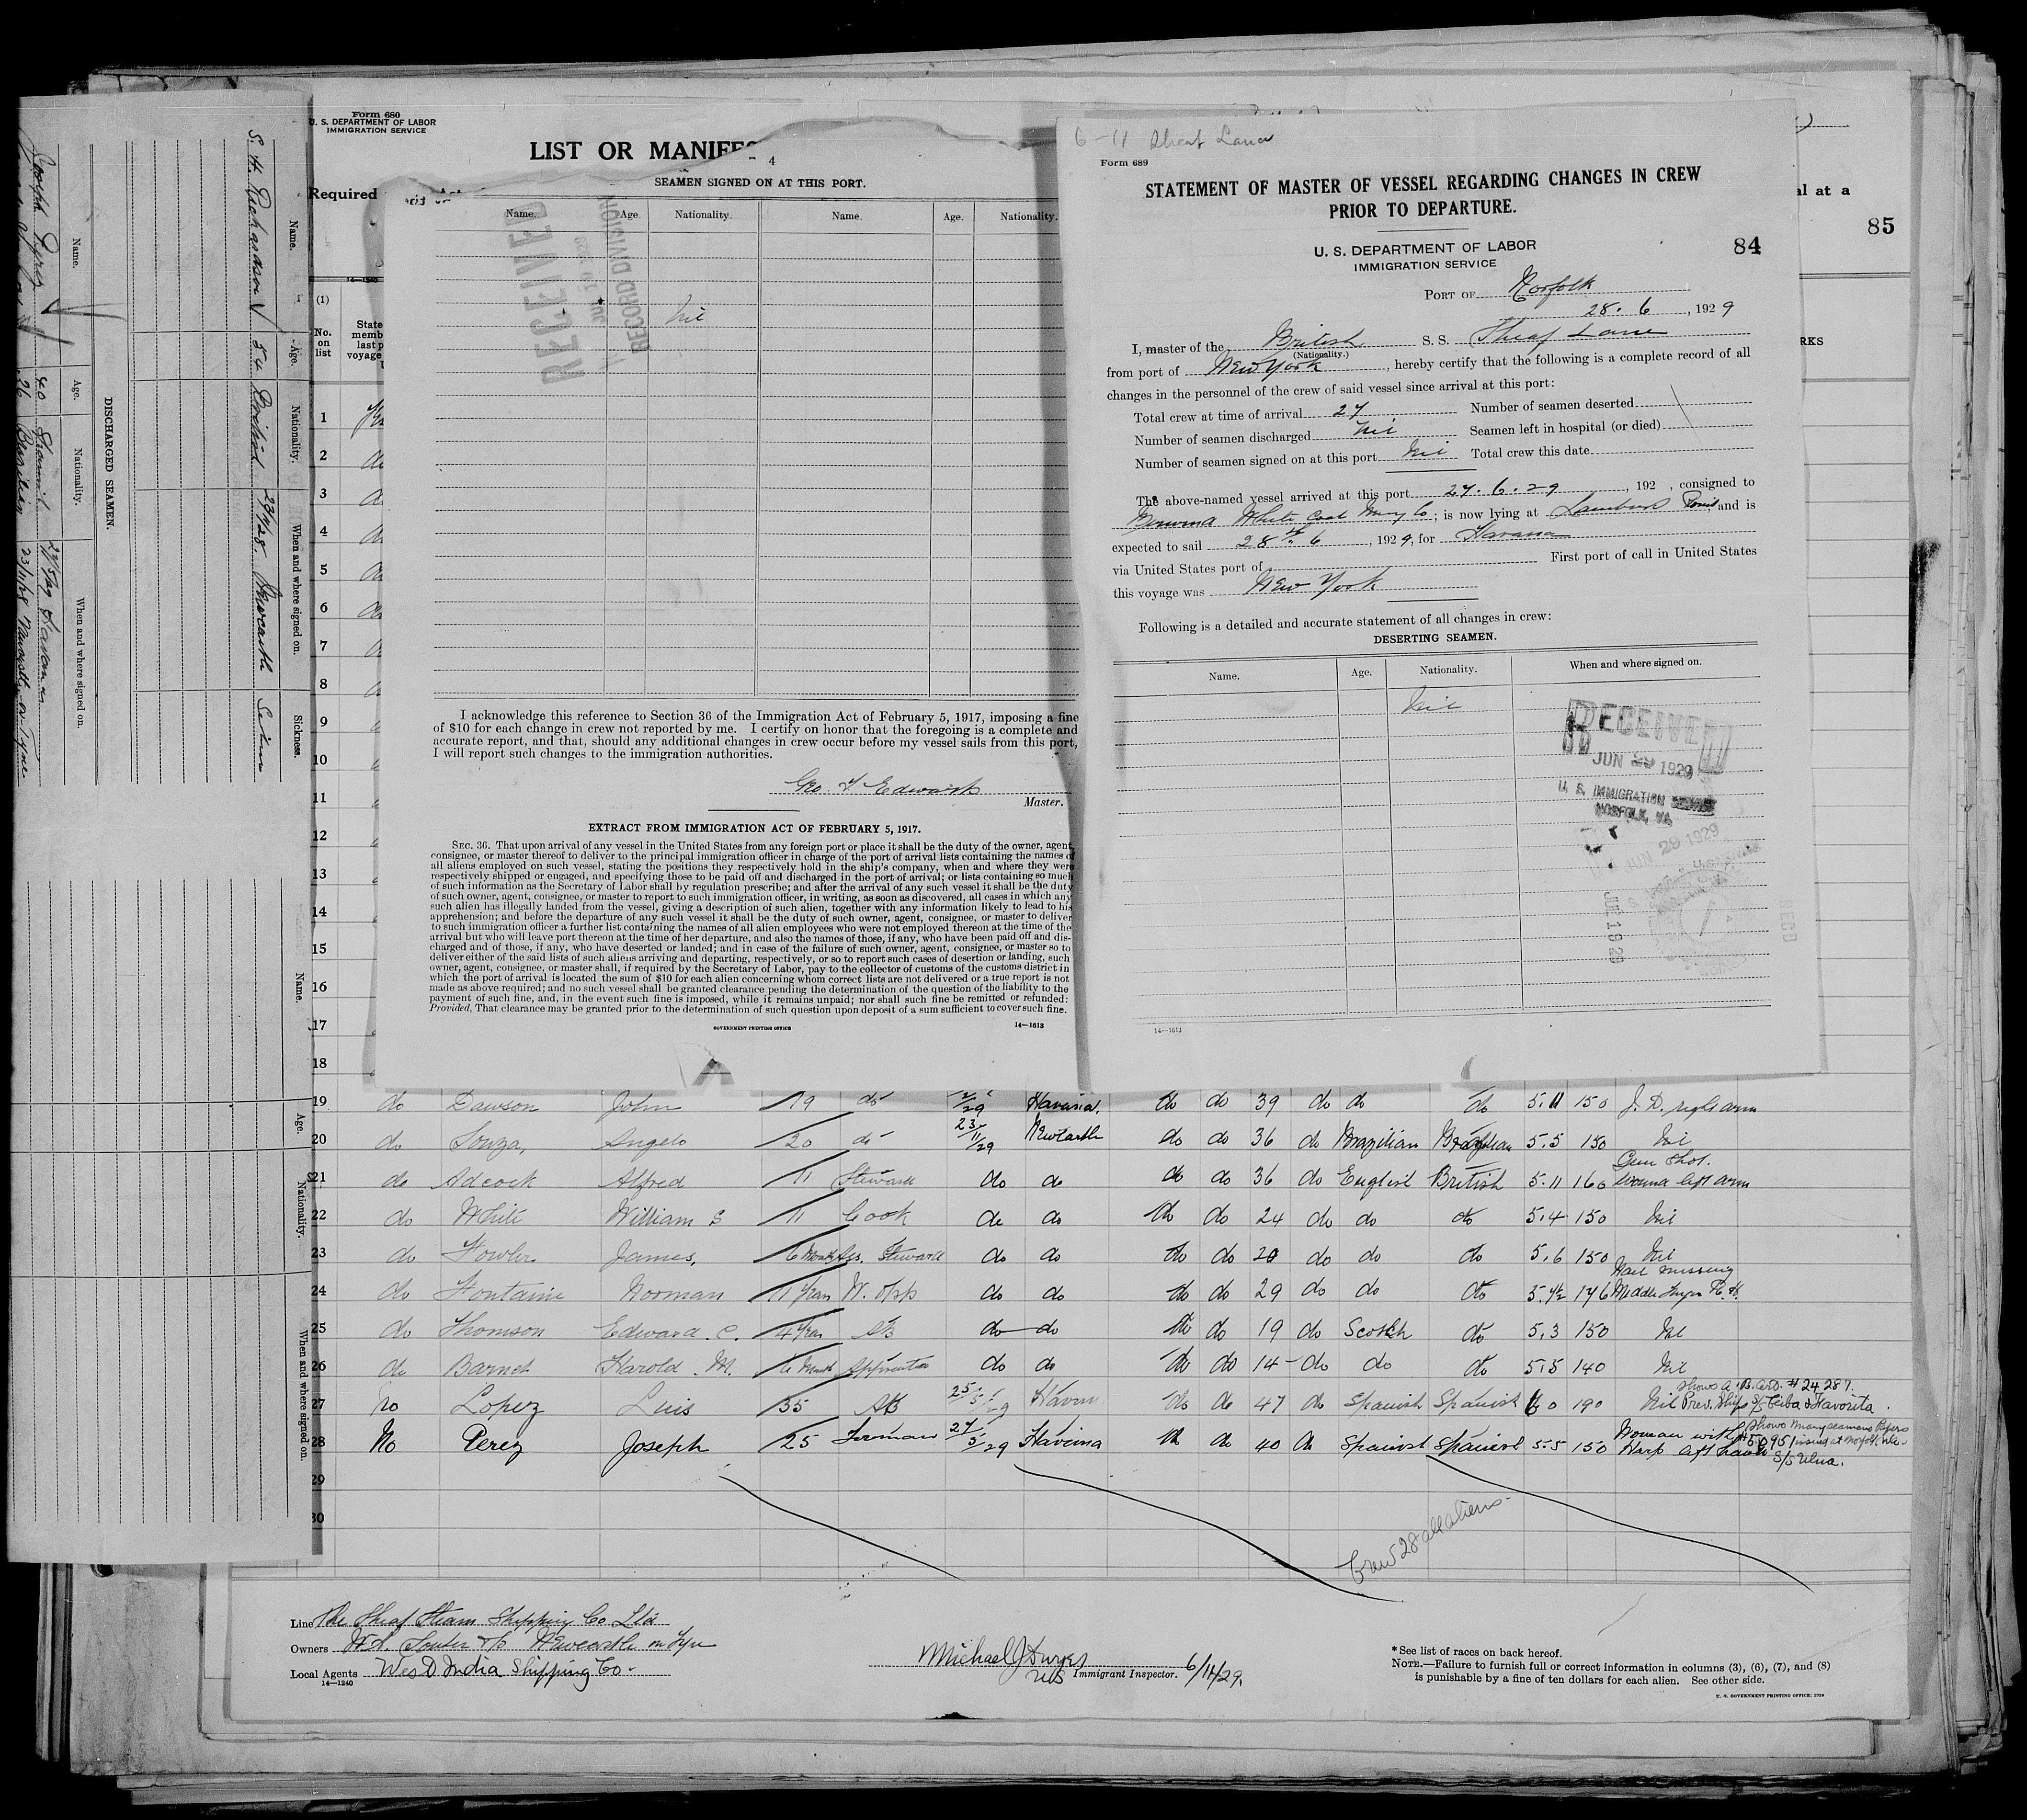 Form 680
U. S. DEPARTMENT OF LABOR
IMMIGRATION SERVICE
LIST OR MANIFES
Required
al at a
85
RKS
14—1240
(1)
No.
on
list
State
memb
last p
voyage
1
2
3
4
5
6
7
8
9
10
11
12
13
14
15
16
17
18
4
SEAMEN SIGNED ON AT THIS PORT.
Name. Age. Nationality. Name. Age. Nationality.
RECEIVED
RECORD DIVISION
Nil
I acknowledge this reference to Section 36 of the Immigration Act of February 5, 1917, imposing a fine
of $10 for each change in crew not reported by me. I certify on honor that the foregoing is a complete and
accurate report, and that, should any additional changes in crew occur before my vessel sails from this port,
I will report such changes to the immigration authorities.
Geo. Edwards
Master.
EXTRACT FROM IMMIGRATION ACT OF FEBRUARY 5, 1917.
SEC. 36. That upon arrival of any vessel in the United States from any foreign port or place it shall be the duty of the owner, agent,
consignee, or master thereof to deliver to the principal immigration officer in charge of the port of arrival lists containing the names of
all aliens employed on such vessel, stating the positions they respectively hold in the ship's company, when and where they were
respectively shipped or engaged, and specifying those to be paid off and discharged in the port of arrival; or lists containing so much
of such information as the Secretary of Labor shall by regulation prescribe; and after the arrival of any such vessel it shall be the duty
of such owner, agent, consignee, or master to report to such immigration officer, in writing, as soon as discovered, all cases in which any
such alien has illegally landed from the vessel, giving a description of such alien, together with any information likely to lead to his
apprehension; and before the departure of any such vessel it shall be the duty of such owner, agent, consignee, or master to deliver
to such immigration officer a further list containing the names of all alien employees who were not employed thereon at the time of the
arrival but who will leave port thereon at the time of her departure, and also the names of those, if any, who have been paid off and dis-
charged and of those, if any, who have deserted or landed; and in case of the failure of such owner, agent, consignee, or master so to
deliver either of the said lists of such aliens arriving and departing, respectively, or so to report such cases of desertion or landing, such
owner, agent, consignee, or master shall, if required by the Secretary of Labor, pay to the collector of customs of the customs district in
which the port of arrival is located the sum of $10 for each alien concerning whom correct lists are not delivered or a true report is not
made as above required; and no such vessel shall be granted clearance pending the determination of the question of the liability to the
payment of such fine, and, in the event such fine is imposed, while it remains unpaid; nor shall such fine be remitted or refunded:
Provided, That clearance may be granted prior to the determination of such question upon deposit of a sum sufficient to cover such fine.
GOVERNMENT PRINTING OFFICE 14—1613
6-11 Sheaf Lane
Form 689
STATEMENT OF MASTER OF VESSEL REGARDING CHANGES IN CREW
PRIOR TO DEPARTURE.
U. S. DEPARTMENT OF LABOR
IMMIGRATION SERVICE
84
PORT OF Norfolk
28. 6, 1929
I, master of the British S. S. Sheaf Lane
(Nationality.)
from port of New York, hereby certify that the following is a complete record of all
changes in the personnel of the crew of said vessel since arrival at this port:
Total crew at time of arrival 27 Number of seamen deserted
Number of seamen discharged Nil Seamen left in hospital (or died)
Number of seamen signed on at this port Nil Total crew this date
The above-named vessel arrived at this port 27. 6. 29, 192 , consigned to
White Coal Co; is now lying at Lamberts Point and is
expected to sail 28th 6, 1929, for Havana
via United States port of First port of call in United States
this voyage was New York
Following is a detailed and accurate statement of all changes in crew:
DESERTING SEAMEN.
Name. Age. Nationality. When and where signed on.
Nil
RECEIVED
JUN 29 1929
U. S. IMMIGRATION SERVICE
NORFOLK, VA
JUN 29 1929
14—1613
DISCHARGED SEAMEN.
Name. Age. Nationality. When and where signed on.
Joseph Perez 40 Spanish 27/5/29 Havana
26 Brazilian 23/11/28 Newcastle on Tyne
Name. Age. Nationality. When and where signed on. Sickness.
S. H. Richardson 54 British 23/11/28 Newcastle
Name. Age. Nationality. When and where signed on.
19 do Dawson John 19 do 29 Havana. do do 39 do do do 5.11 150 J. D. right arm
20 do Souza, Angelo 20 do 23/11/29 Newcastle do do 36 do Brazilian Brazilian 5.5 150 Nil
21 do Adcock Alfred 11 Steward do do do do 36 do English British 5.11 160 Gun Shot. wound left arm
22 do White William S 11 Cook do do do do 24 do do do 5.4 150 Nil
23 do Fowler James, 6 Month Ass. Steward do do do do 20 do do do 5.6 150 Nil
24 do Fontaine Norman 11 Years W. Opp do do do do 29 do do do 5.4½ 146 Nail missing Middle finger R. H.
25 do Thomson Edward. C. 4 Year AB do do do do 19 do Scotch do 5.3 150 Nil
26 do Barnet Harold. M. 6 Month Apprentice do do do do 14 do do do 5.5 140 Nil
27 No Lopez Luis 35 AB 25/5/29 Havana do do 47 do Spanish Spanish 6 0 190 Nil shows a. B. card. #24287. Prev. Ship S/S Ceiba & Favorita.
28 No Perez Joseph 25 Fireman 27/5/29 Havana do do 40 do Spanish Spanish 5.5 150 Woman with Harp left hand shows seamans Papers #50951 issued at Norfolk, Va. S/S Ulua.
29
30
Crew 28 all aliens.
Line The Sheaf Steam Shipping Co. Ltd
Owners W. A. Souter & Co Newcastle on Tyne
Local Agents West India Shipping Co.
14—1240
Michael J Dwyer
US Immigrant Inspector. 6/11/29.
*See list of races on back hereof.
NOTE.—Failure to furnish full or correct information in columns (3), (6), (7), and (8)
is punishable by a fine of ten dollars for each alien. See other side.
U. S. GOVERNMENT PRINTING OFFICE: 1929